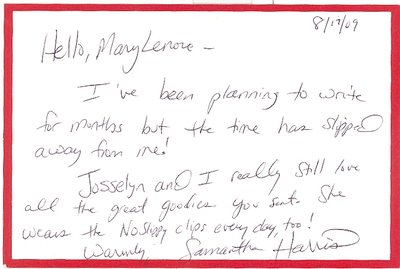 8/17/09
Hello, Mary Lenore -
I've been planning to write
for months but the time has slipped
away from me!
Josselyn and I really still love
all the great goodies you sent. She
wears the No Slippy clips every day, too!
Warmly, Samantha Harris